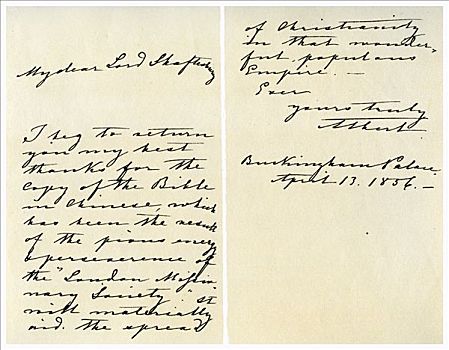 My dear Lord Shaftesbury
I beg to return
you my best
thanks for the
Copy of the Bible
in Chinese, which
has been the result
of the pious energy
& perseverence of
the "London Missio
nary Society". It
will materially
aid the spread
of Christianity
in that wonder-
ful populous
Empire. —
Ever
yours truly
Albert
Buckingham Palace.
April 13. 1856. —